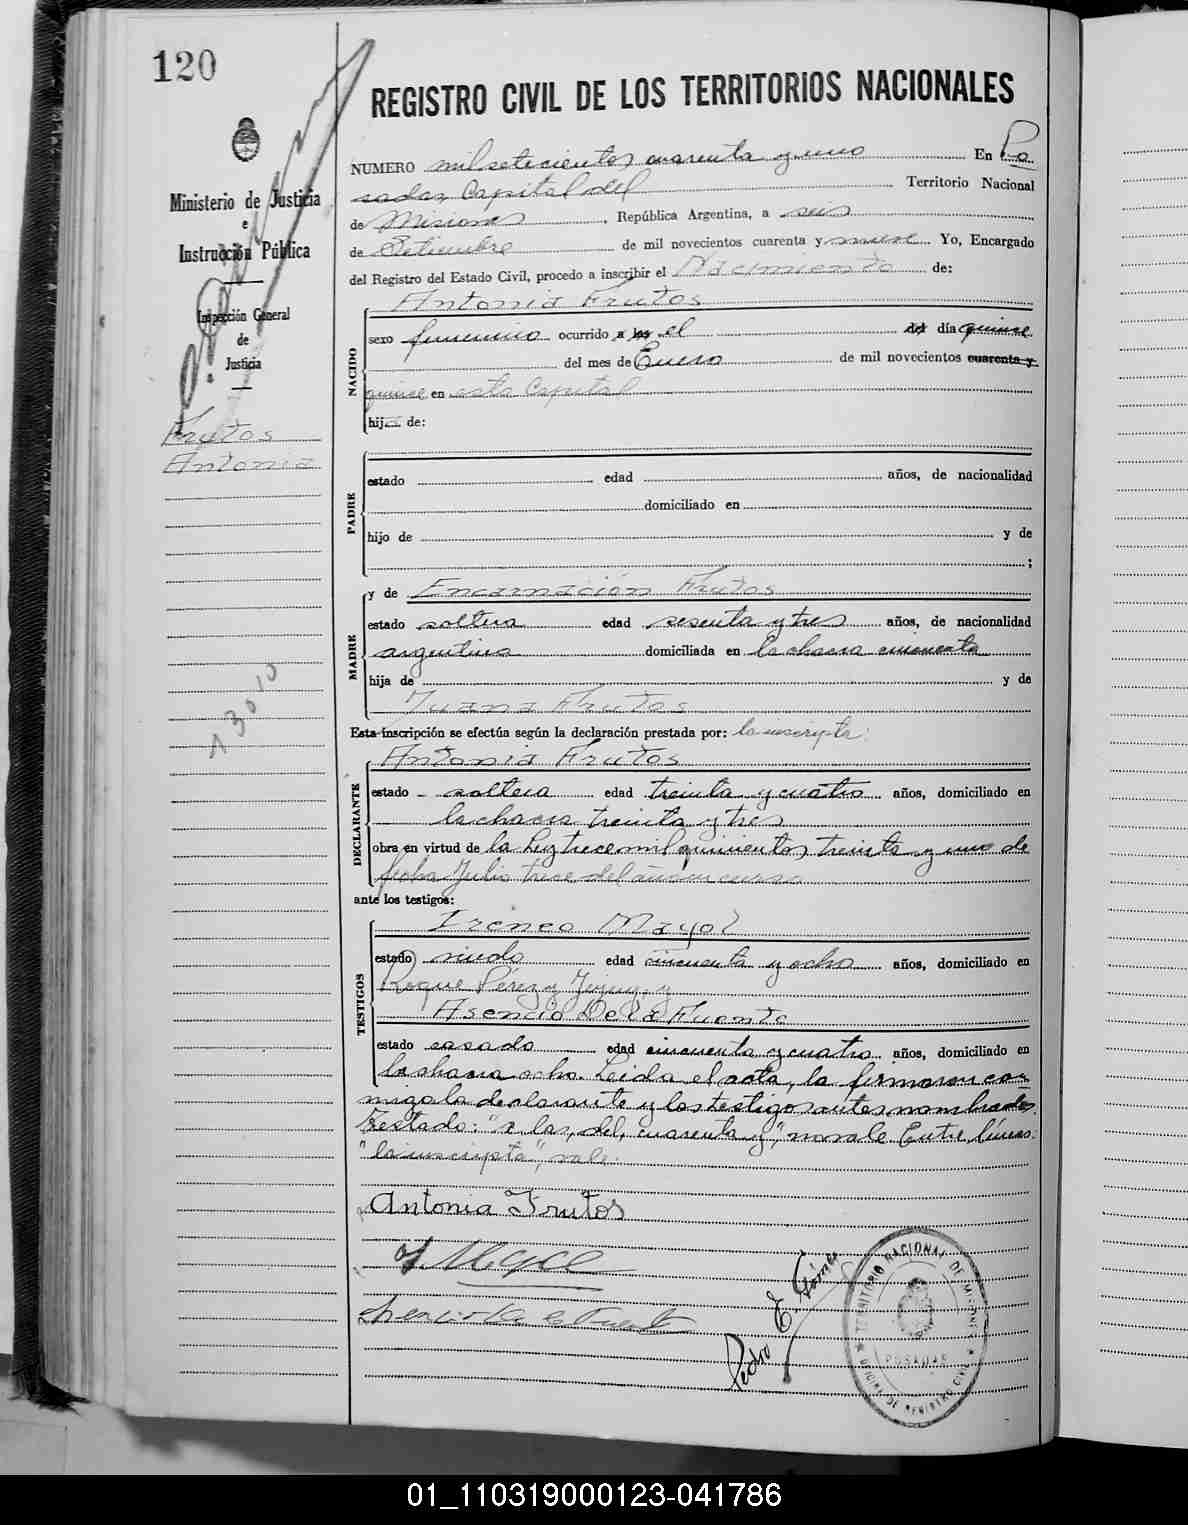 120
REGISTRO CIVIL DE LOS TERRITORIOS NACIONALES
Ministerio de Justicia
e
Instrucción Pública
Inspección General
de
Justicia
Frutos
Antonia
13010
NUMERO mil setecientos cuarenta y uno En Po
sadas, Capital del Territorio Nacional
de Misiones, República Argentina, a seis
de Setiembre de mil novecientos cuarenta y nueve Yo, Encargado
del Registro del Estado Civil, procedo a inscribir el Nacimiento de:
NACIDO
Antonia Frutos
sexo femenino ocurrido a las el del día quince
del mes de Enero de mil novecientos cuarenta y
quince en esta Capital
hija de:
PADRE
estado edad años, de nacionalidad
domiciliado en
hijo de y de
;
MADRE
y de Encarnación Frutos
estado soltera edad sesenta y tres años, de nacionalidad
argentina domiciliada en la chacra cincuenta
hija de y de
Juana Frutos
Esta inscripción se efectúa según la declaración prestada por: la inscripta:
DECLARANTE
Antonia Frutos
estado soltera edad treinta y cuatro años, domiciliado en
la chacra treinta y tres
obra en virtud de la Ley trece mil quinientos treinta y uno de
fecha Julio trece del año en curso
ante los testigos:
TESTIGOS
Ireneo Mayol
estado viudo edad cincuenta y ocho años, domiciliado en
Roque Pérez y Jujuy, y
Asencio De la Fuente
estado casado edad cincuenta y cuatro años, domiciliado en
la chacra ocho. Leida el acta, la firmaron con
migo la declarante y los testigos antes nombrados.
Testado: "a las, del, cuarenta y", no vale. Entre líneas:
"la inscripta", vale.
Antonia Frutos
Pedro E. Gómez
TERRITORIO NACIONAL DE MISIONES
POSADAS
OFICINA DE REGISTRO CIVIL
01_110319000123-041786